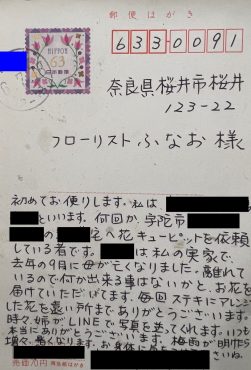 郵便はがき
NIPPON
63
日本郵便
633 0091
奈良県桜井市桜井
123-22
フローリスト ふなお 様
初めてお便りします。私は
といいます。何回か、宇陀市
の 宅へ花キューピットを依頼
している者です。 は私の実家で、
去年の9月に母が亡くなりました。離れて
いるので何か出来る事はないかと、お花を
届けていただいてます。毎回ステキにアレンジ
した花を遠い所までありがとうございます。
時々、姉がLINEで写真を送ってくれます。いつも
本当にありがとうございます。梅雨が明けたら
増々、暑くなります。お身体に
売価70円